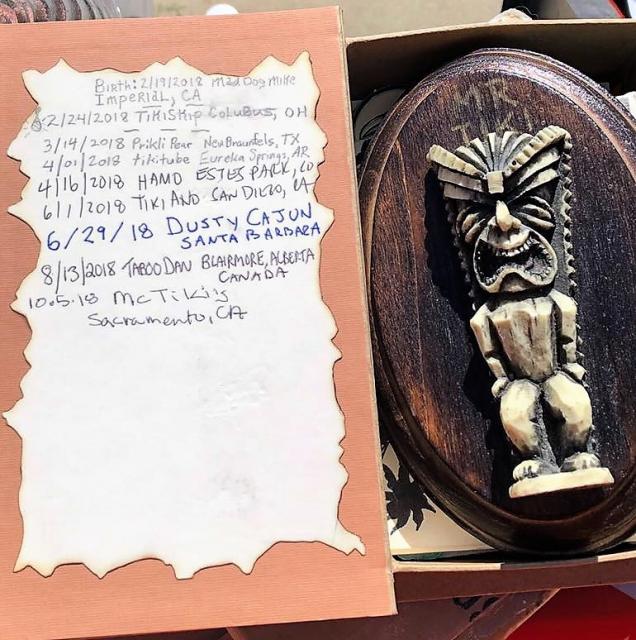 Birth: 2/19/2018 Mad Dog Mike
Imperial, CA
2/24/2018 TikiSkip Colubus, OH
3/14/2018 Prikli Pear New Braunfels, TX
4/01/2018 tikitube Eureka Springs, AR
4/16/2018 HAMO ESTES PARK, CO
6/1/2018 TIKI AND SAN DIEGO, CA
6/29/18 DUSTY CAJUN
SANTA BARBARA
8/13/2018 TABOO DAN BLAIRMORE, ALBERTA
CANADA
10.5.18 McTiki's
Sacramento, CA
MR
TIKI